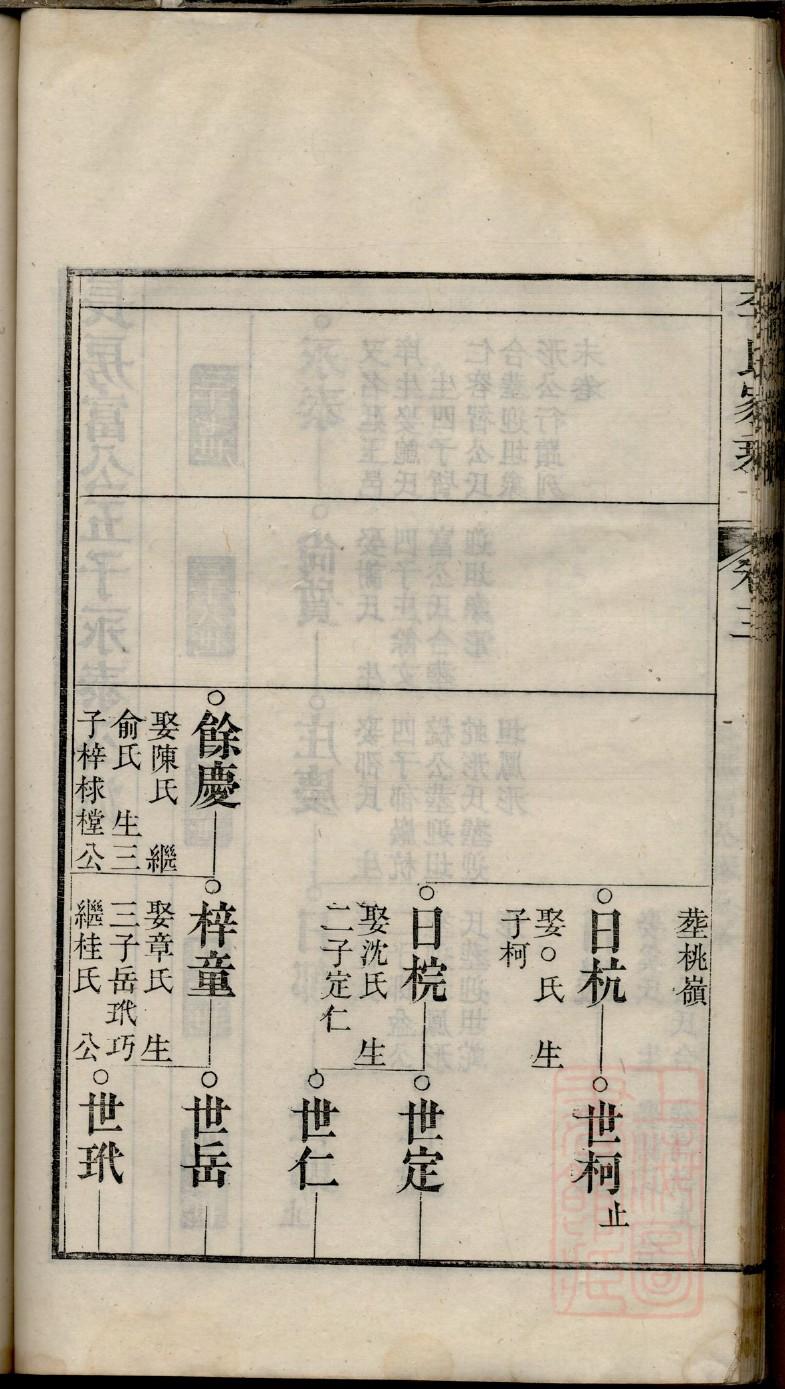 李氏家乘
卷三
塟桃嶺
日杭
娶○氏　生
子柯
世柯止
日梡
娶沈氏　生
二子定仁
世定
世仁
餘慶
娶陳氏　繼
俞氏　生三
子梓梂樘公
梓童
娶章氏　生
三子岳玳巧
繼桂氏　公
世岳
世玳